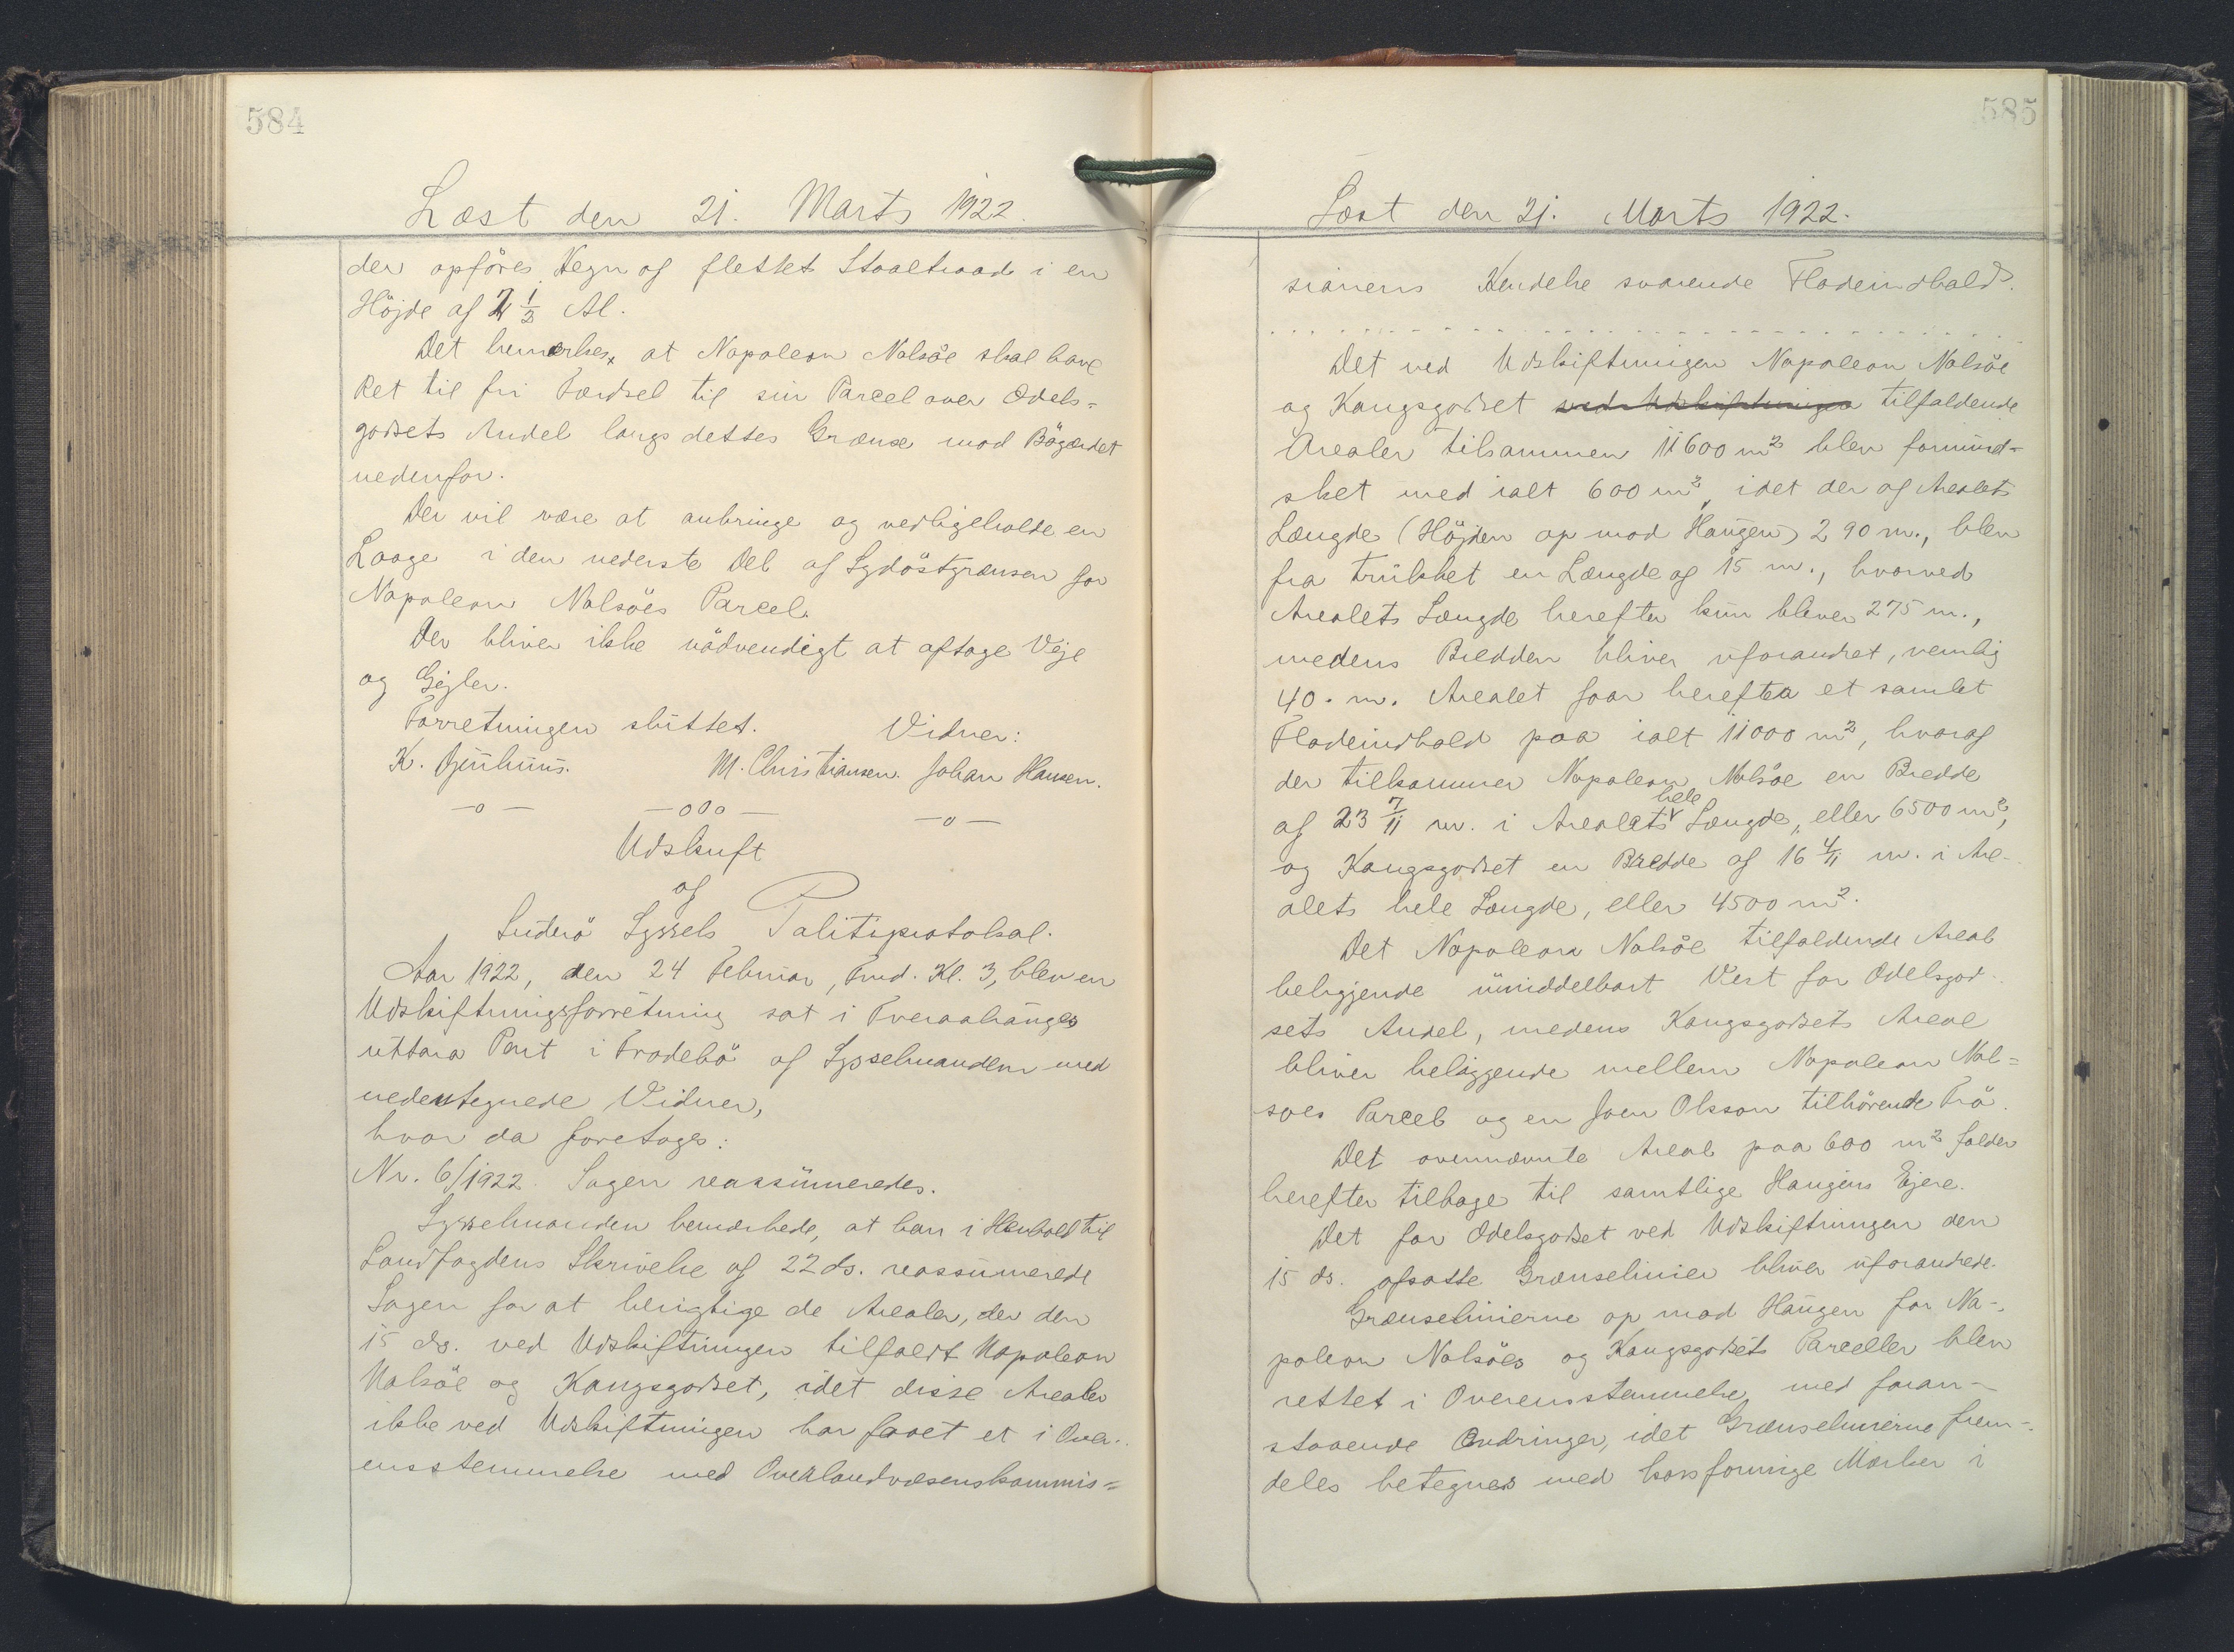 584
Læst den 21. Marts 1922.
der opföres Hegn af flettet Staaltraad i en
Höjde af 2 1/2 Al.
Det bemærkes, at Napoleon Nolsöe skal have
Ret til fri Færdsel til sin Parcel over Odels-
godsets Andel langs dettes Grænse mod Bögærdet
nedenfor.
Der vil være at anbringe og vedligeholde en
Laage i den nederste Del af Sydöstgrænsen for
Napoleon Nolsöes Parcel.
Der bliver ikke nödvendigt at aftage Veje
og Gejler.
Forretningen sluttet. Vidner:
K. Öjenhuus. M. Christiansen. Johan Hansen.
—o— —o0o— —o—
Udskrift
af
Suderö Syssels Politiprotokol.
Aar 1922, den 24 Februar, Fmd. Kl. 3, blev en
Udskiftningsforretning sat i Tveraahauges
uttara Part i Frodebö af Sysselmanden med
nedentegnede Vidner,
hvor da foretoges:
Nr. 6/1922. Sagen reassumeredes.
Sysselmanden bemærkede, at han i Henhold til
Landfogdens Skrivelse af 22 ds. reassumerede
Sagen for at berigtige de Arealer, der den
15 ds. ved Udskiftningen tilfaldt Napoleon
Nolsöe og Kongsgodset, idet disse Arealer
ikke ved Udskiftningen har faaet et i Over-
ensstemmelse med Overlandvæsenskommis-
585
Læst den 21. Marts 1922.
sionens Kendelse svarende Fladeindhold.
Det ved Udskiftningen Napoleon Nolsöe
og Kongsgodset ved Udskiftningen tilfaldende
Arealer tilsammen 11600 m² blev formind-
sket med ialt 600 m², idet der af Arealets
Længde (Höjden op mod Haugen) 290 m., blev
fra trukket en Længde af 15 m., hvorved
Arealets Længde herefter kun bliver 275 m.,
medens Bredden bliver uforandret, nemlig
40. m. Arealet faar herefter et samlet
Fladeindhold paa ialt 11000 m², hvoraf
der tilkommer Napoleon Nolsöe en Bredde
af 23 7/11 m. i Arealets hele Længde, eller 6500 m²,
og Kongsgodset en Bredde af 16 4/11 m. i Are-
alets hele Længde, eller 4500 m².
Det Napoleon Nolsöe tilfaldende Areal
beliggende umiddelbart Vest for Odelsgod-
sets Andel, medens Kongsgodsets Areal
bliver beliggende mellem Napoleon Nol-
soes Parcel og en Joen Olsson tilhörende Trö.
Det ovennævnte Areal paa 600 m² falder
herefter tilbage til samtlige Haugens Ejere.
Det for Odelsgodset ved Udskiftningen den
15 ds. afsatte Grænselinier bliver uforandrede.
Grænselinierne op mod Haugen for Na-
poleon Nolsöes og Kongsgodsets Parceller blev
rettet i Overensstemmelse med foran-
staaende Ændringer, idet Grænselinierne frem-
deles betegnes med korsformige Mærker i